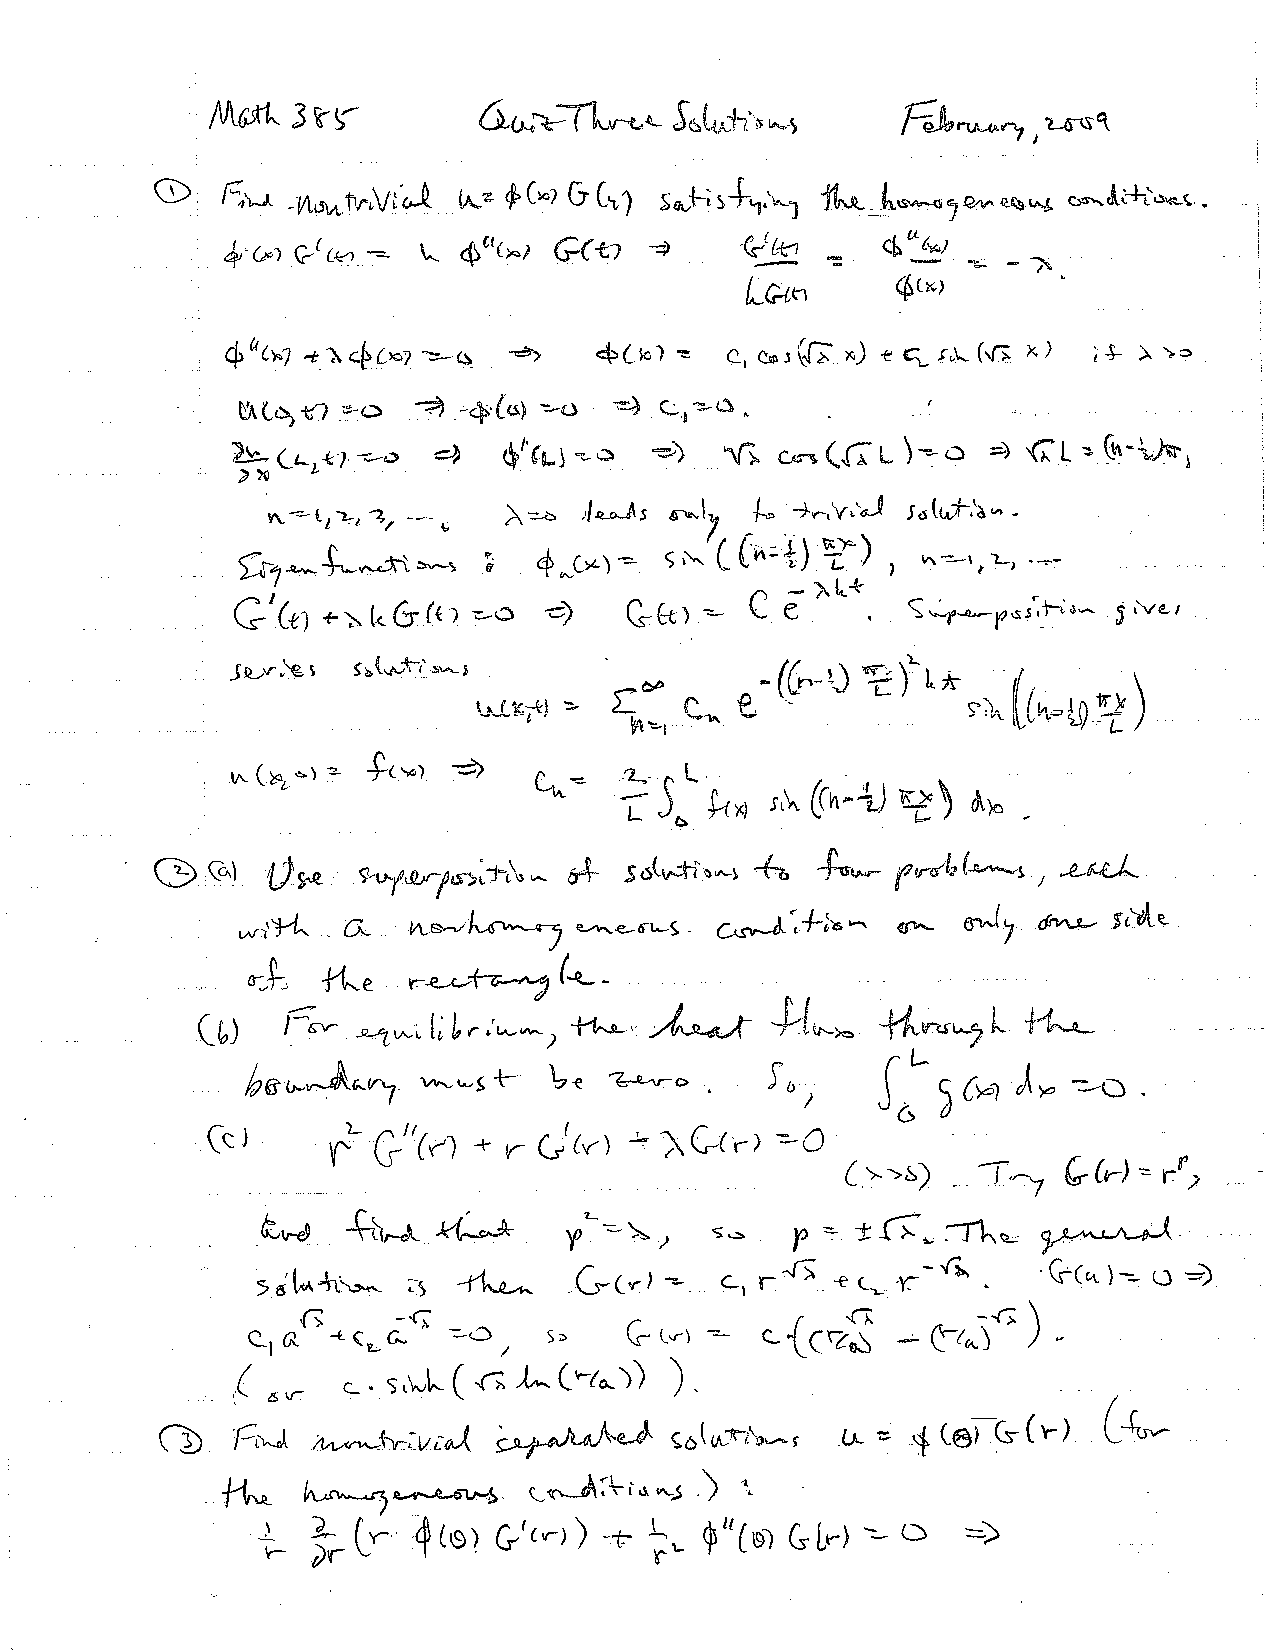 Math 385 Quiz Three Solutions February, 2009
① Find nontrivial u = φ(x) G(t) satisfying the homogeneous conditions.
φ(x) G'(t) = k φ''(x) G(t) ⇒ G'(t)/kG(t) = φ''(x)/φ(x) = -λ.
φ''(x) + λφ(x) = 0 ⇒ φ(x) = c₁ cos(√λ x) + c₂ sin(√λ x) if λ>0
u(0,t) = 0 ⇒ φ(0) = 0 ⇒ c₁ = 0.
∂u/∂x (L,t) = 0 ⇒ φ'(L) = 0 ⇒ √λ cos(√λ L) = 0 ⇒ √λ L = (n-½)π,
n = 1, 2, 3, .... λ=0 leads only to trivial solution.
Eigenfunctions : φₙ(x) = sin((n-½) πx/L), n = 1, 2, ...
G'(t) + λkG(t) = 0 ⇒ G(t) = C e^{-λkt}. Superposition gives
series solutions
u(x,t) = Σ_{n=1}^∞ cₙ e^{-((n-½) π/L)² kt} sin((n-½) πx/L)
u(x,0) = f(x) ⇒ cₙ = 2/L ∫₀^L f(x) sin((n-½) πx/L) dx.
② (a) Use superposition of solutions to four problems, each
with a nonhomogeneous condition on only one side
of the rectangle.
(b) For equilibrium, the heat flux through the
boundary must be zero. So, ∫₀^L g(x) dx = 0.
(c) r² G''(r) + r G'(r) - λG(r) = 0
(λ>0) Try G(r) = r^p,
and find that p² = λ, so p = ±√λ. The general
solution is then G(r) = c₁ r^{√λ} + c₂ r^{-√λ}. G(a) = 0 ⇒
c₁ a^{√λ} + c₂ a^{-√λ} = 0, so G(r) = c((r/a)^{√λ} - (r/a)^{-√λ}).
(or c · sinh(√λ ln(r/a))).
③ Find nontrivial separated solutions u = φ(θ) G(r) (for
the homogeneous conditions.) :
1/r ∂/∂r (r φ(θ) G'(r)) + 1/r² φ''(θ) G(r) = 0 ⇒